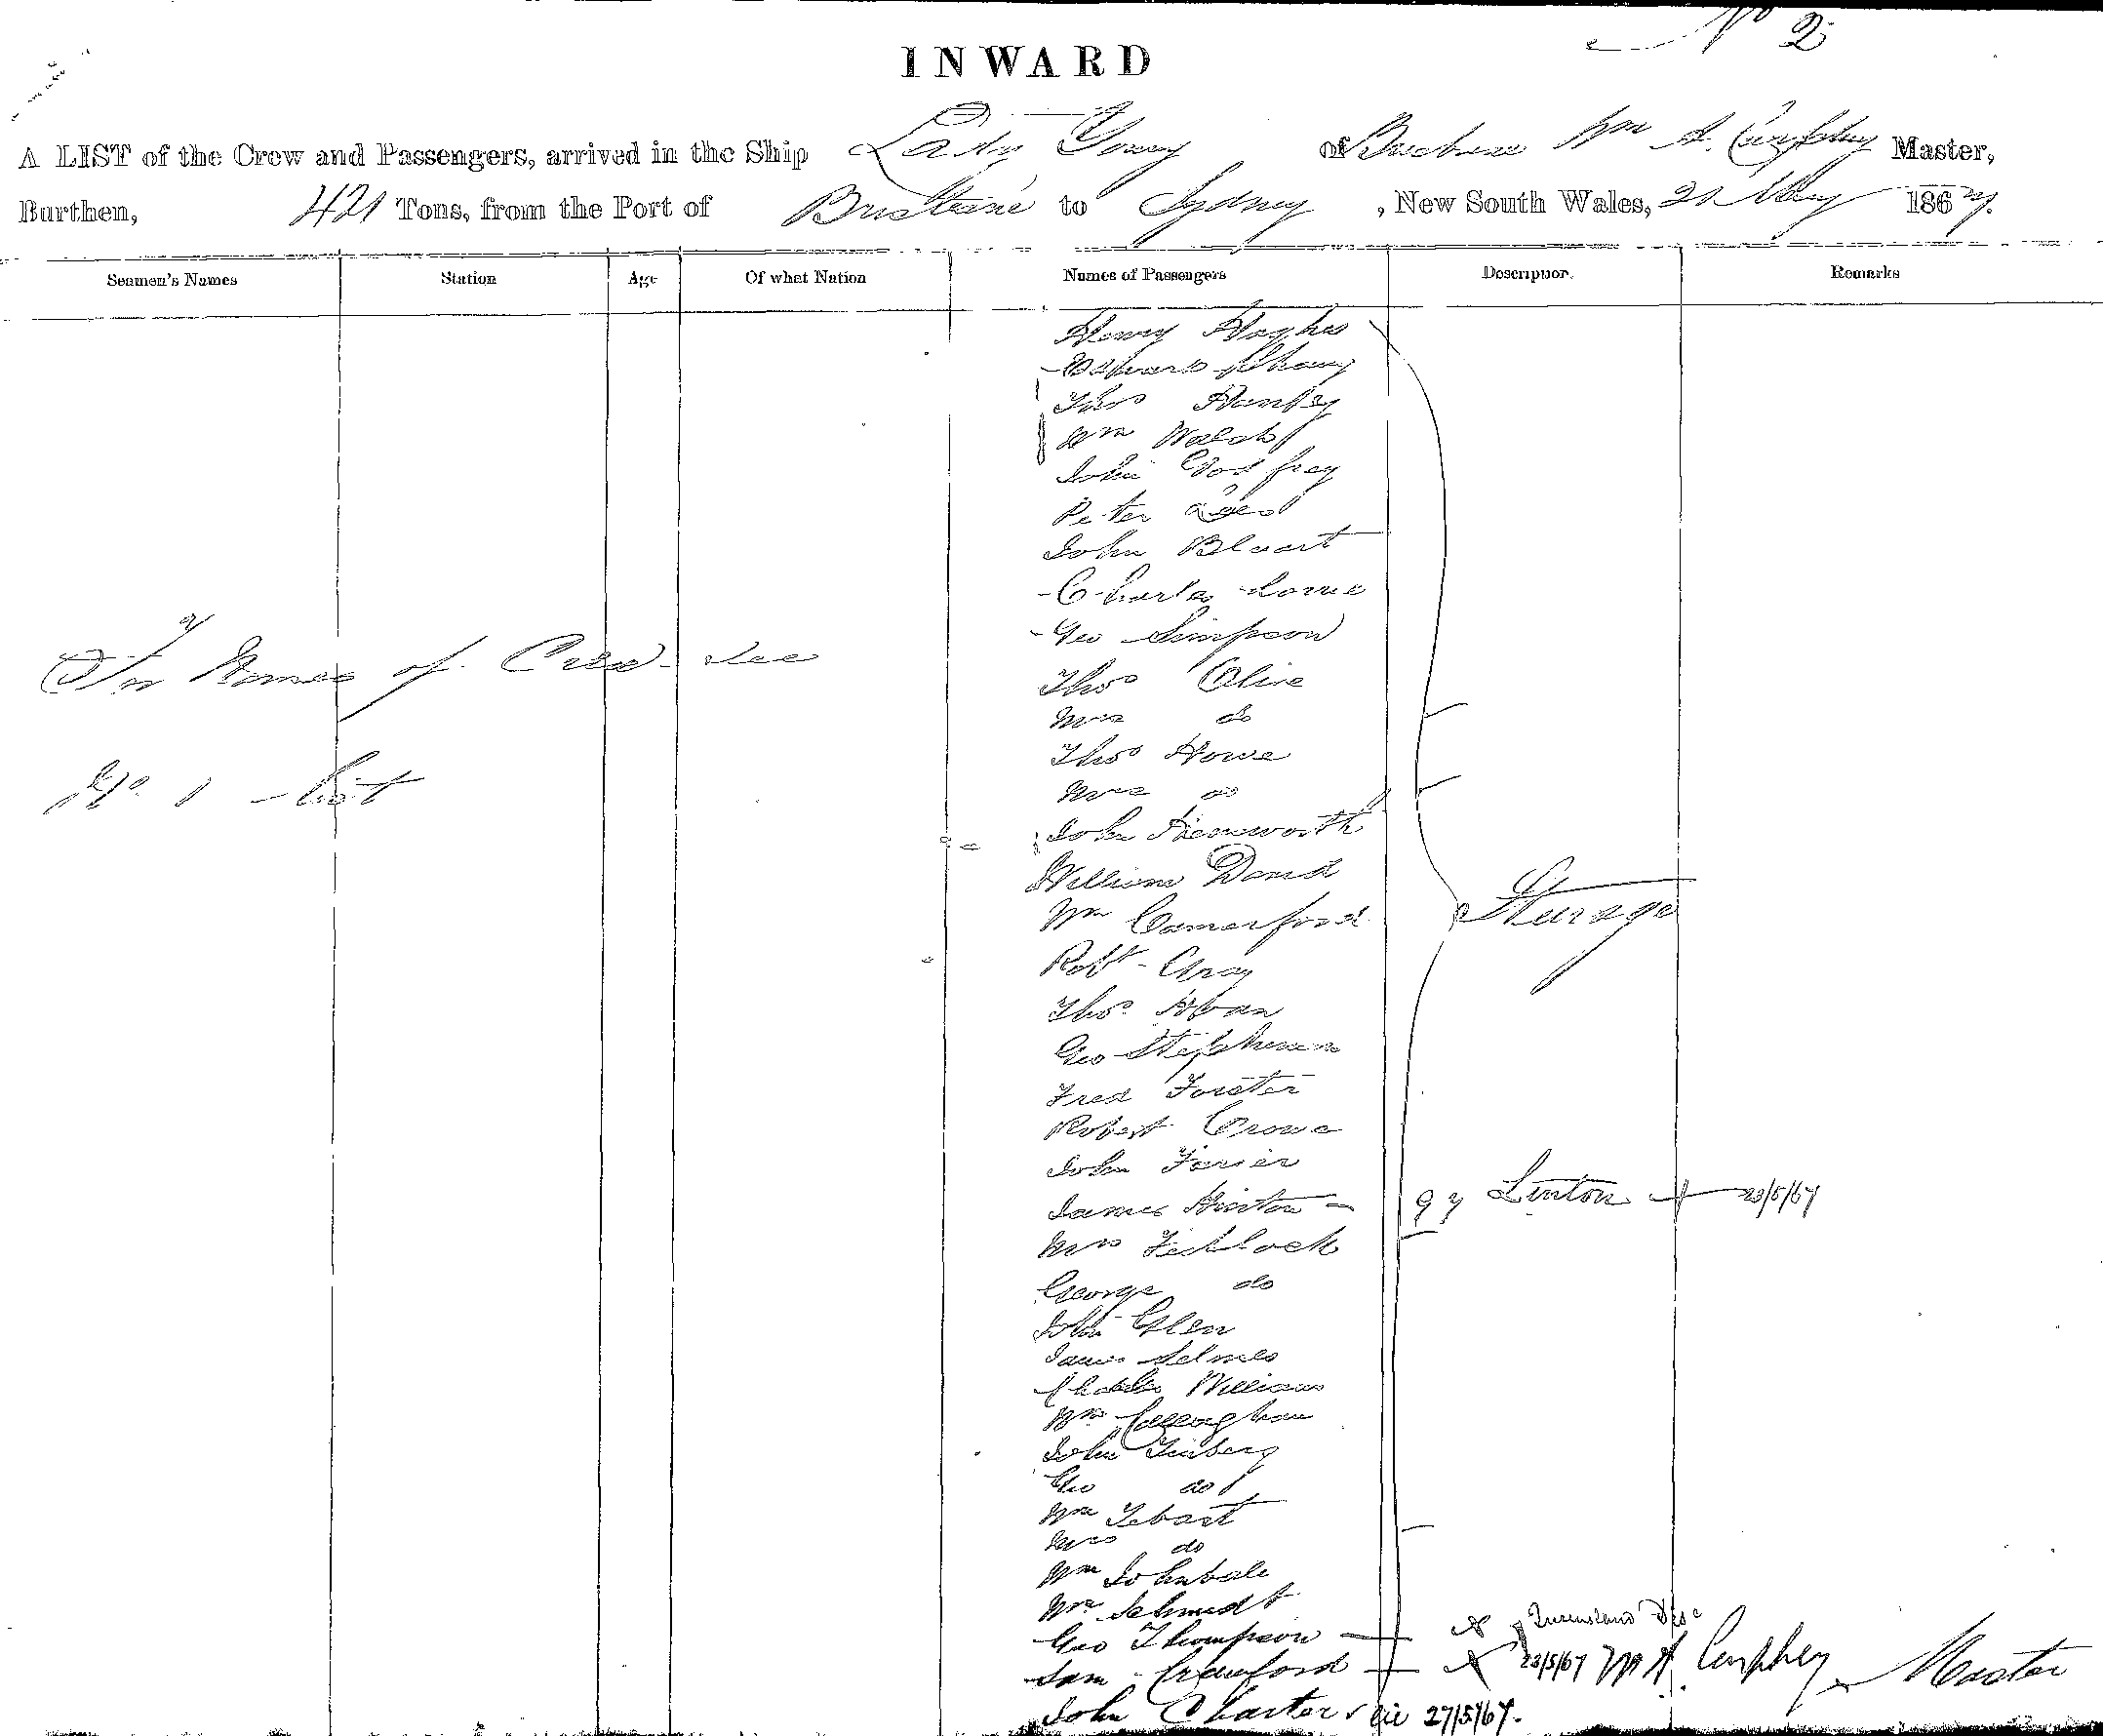 No 2
INWARD
A LIST of the Crew and Passengers, arrived in the Ship Lady Young of Brisbane Wm A. Curphey Master,
Burthen, 421 Tons, from the Port of Brisbane to Sydney, New South Wales, 21 May 1867.
Seamen's Names Station Age Of what Nation Names of Passengers Description Remarks
Henry Hughes
Edward
Thos Hanley
Wm Walsh
John Godfrey
Peter
John Bluart
Charles Lowe
Geo Simpson
For Names of Crew see
Thos Cline
Mrs do
Thos Howe
Mrs do
No. 1 List
John Hemworth
William David
Wm Comerford
Steerage
Robt Gray
Thos.
Geo Stephenson
Fred Forster
Robert Crowe
John
James Hinton — 97 Linton 23/5/67
Mrs
George do
John Glen
James Selmes
Charles Williams
Wm Callaghan
John
Geo do
Wm Tebart
Mrs do
Wm
Wm Schmidt
Geo Thompson — X Queensland Desc
Sam Crawford — X 23/5/67 Wm A. Curphey Master
John Charters 27/5/67.